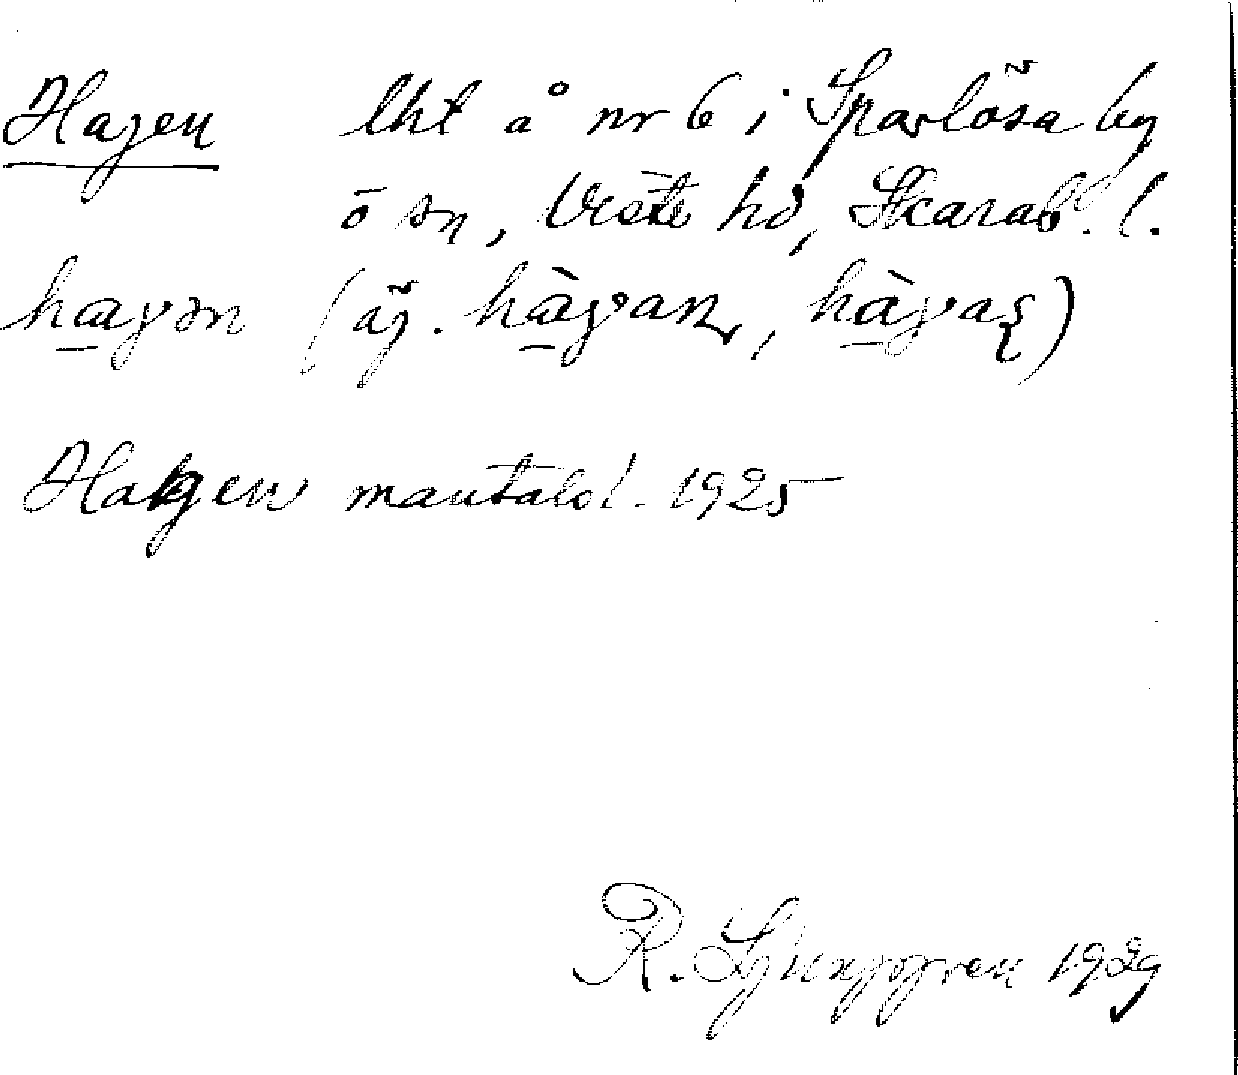 Hagen lht å nr 6 i Sparlösa by
o sn, Viste hd, Skarab. l.
hagən (äv. hàgan, hàgaʂ)
Hagen mantalsl. 1925
R. Ljunggren 1929